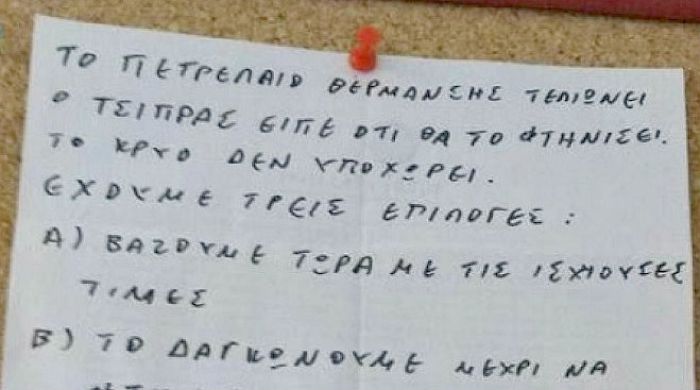 ΤΟ ΠΕΤΡΕΛΑΙΟ ΘΕΡΜΑΝΣΗΣ ΤΕΛΙΩΝΕΙ
Ο ΤΣΙΠΡΑΣ ΕΙΠΕ ΟΤΙ ΘΑ ΤΟ ΦΤΗΝΙΣΕΙ.
ΤΟ ΚΡΥΟ ΔΕΝ ΥΠΟΧΩΡΕΙ.
ΕΧΟΥΜΕ ΤΡΕΙΣ ΕΠΙΛΟΓΕΣ:
Α) ΒΑΖΟΥΜΕ ΤΩΡΑ ΜΕ ΤΙΣ ΙΣΧΥΟΥΣΕΣ
ΤΙΜΕΣ
Β) ΤΟ ΔΑΓΚΩΝΟΥΜΕ ΜΕΧΡΙ ΝΑ